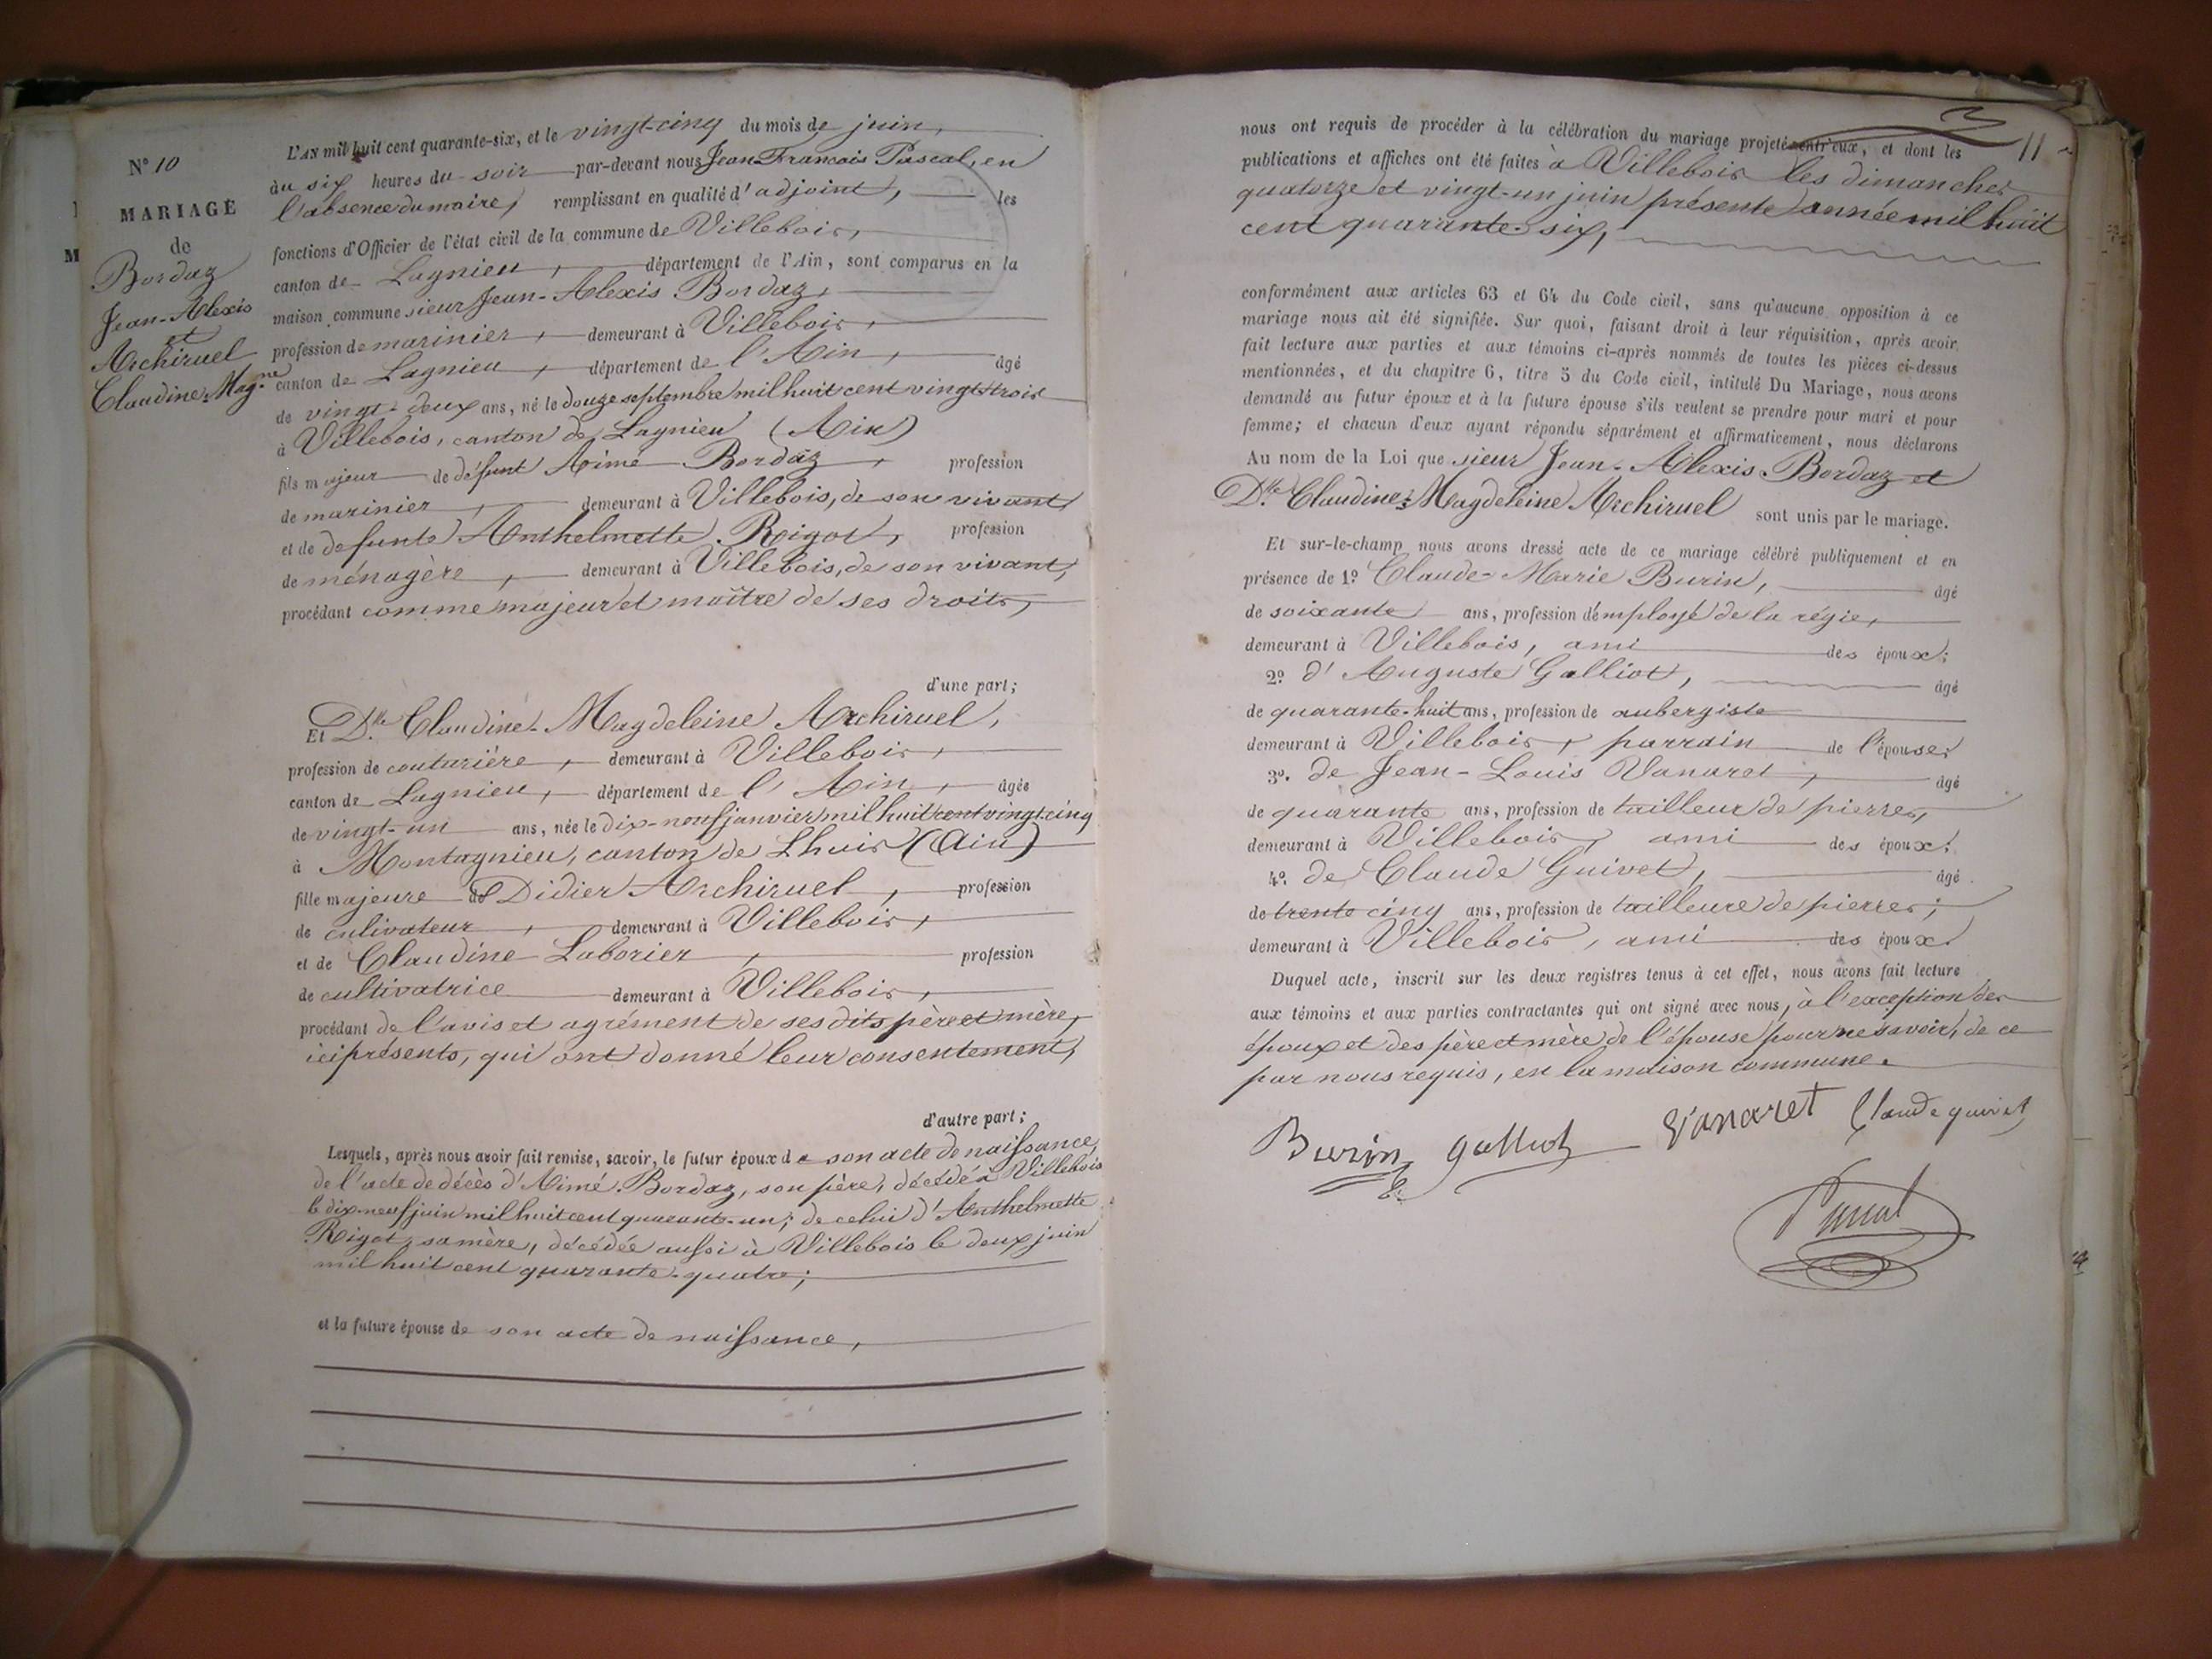 N° 10
MARIAGE
de
Bordaz
Jean-Alexis
et
Archiruel
Claudine-Mag.ne
L'AN mil huit cent quarante-six, et le vingt-cinq du mois de juin,
au six heures du soir par-devant nous Jean-Francois Pascal, en
l'absence du maire, remplissant en qualité d'adjoint, les
fonctions d'Officier de l'état civil de la commune de Villebois,
canton de Lagnieu, département de l'Ain, sont comparus en la
maison commune sieur Jean-Alexis Bordaz,
profession de marinier, demeurant à Villebois,
canton de Lagnieu, département de l'Ain, âgé
de vingt-deux ans, né le douze septembre mil huit cent vingt-trois
à Villebois, canton de Lagnieu (Ain)
fils majeur de défunt Aimé Bordaz, profession
de marinier, demeurant à Villebois, de son vivant,
et de defunte Anthelmette Rigot, profession
de ménagère, demeurant à Villebois, de son vivant,
procédant comme majeur et maître de ses droits,
d'une part;
Et D.lle Claudine-Magdeleine Archiruel,
profession de couturière, demeurant à Villebois,
canton de Lagnieu, département de l'Ain, âgée
de vingt-un ans, née le dix-neuf janvier mil huit cent vingt-cinq
à Montagnieu, canton de Lhuis (Ain)
fille majeure de Didier Archiruel, profession
de cultivateur, demeurant à Villebois,
et de Claudine Laborier, profession
de cultivatrice demeurant à Villebois,
procédant de l'avis et agrément de ses dits père et mère,
ici présents, qui ont donné leur consentement,
d'autre part;
Lesquels, après nous avoir fait remise, savoir, le futur époux de son acte de naissance,
de l'acte de décès d'Aimé Bordaz, son père, décédé à Villebois
le dix-neuf juin mil huit cent quarante-un; de celui d'Anthelmette
Rigot, sa mère, décédée aussi à Villebois le deux juin
mil huit cent quarante-quatre;
et la future épouse de son acte de naissance,
11
nous ont requis de procéder à la célébration du mariage projeté entr'eux, et dont les
publications et affiches ont été faites à Villebois les dimanches
quatorze et vingt-un juin présente année mil huit
cent quarante-six,
conformément aux articles 63 et 64 du Code civil, sans qu'aucune opposition à ce
mariage nous ait été signifiée. Sur quoi, faisant droit à leur réquisition, après avoir
fait lecture aux parties et aux témoins ci-après nommés de toutes les pièces ci-dessus
mentionnées, et du chapitre 6, titre 5 du Code civil, intitulé Du Mariage, nous avons
demandé au futur époux et à la future épouse s'ils veulent se prendre pour mari et pour
femme; et chacun d'eux ayant répondu séparément et affirmativement, nous déclarons
Au nom de la Loi que sieur Jean-Alexis Bordaz et
D.lle Claudine-Magdeleine Archiruel sont unis par le mariage.
Et sur-le-champ nous avons dressé acte de ce mariage célébré publiquement et en
présence de 1° Claude-Marie Burin, âgé
de soixante ans, profession d'employé de la régie,
demeurant à Villebois, ami des époux;
2° d'Auguste Galliot, âgé
de quarante-huit ans, profession de aubergiste
demeurant à Villebois, parrain de l'épouse;
3° de Jean-Louis Vanaret, âgé
de quarante ans, profession de tailleur de pierres,
demeurant à Villebois, ami des époux;
4° de Claude Guivet, âgé
de trente cinq ans, profession de tailleure de pierres;
demeurant à Villebois, ami des époux.
Duquel acte, inscrit sur les deux registres tenus à cet effet, nous avons fait lecture
aux témoins et aux parties contractantes qui ont signé avec nous, à l'exception des
époux et des père et mère de l'épouse pour ne savoir, de ce
par nous requis, en la maison commune.
Burin Galliot Vanaret Claude guivet
Pascal